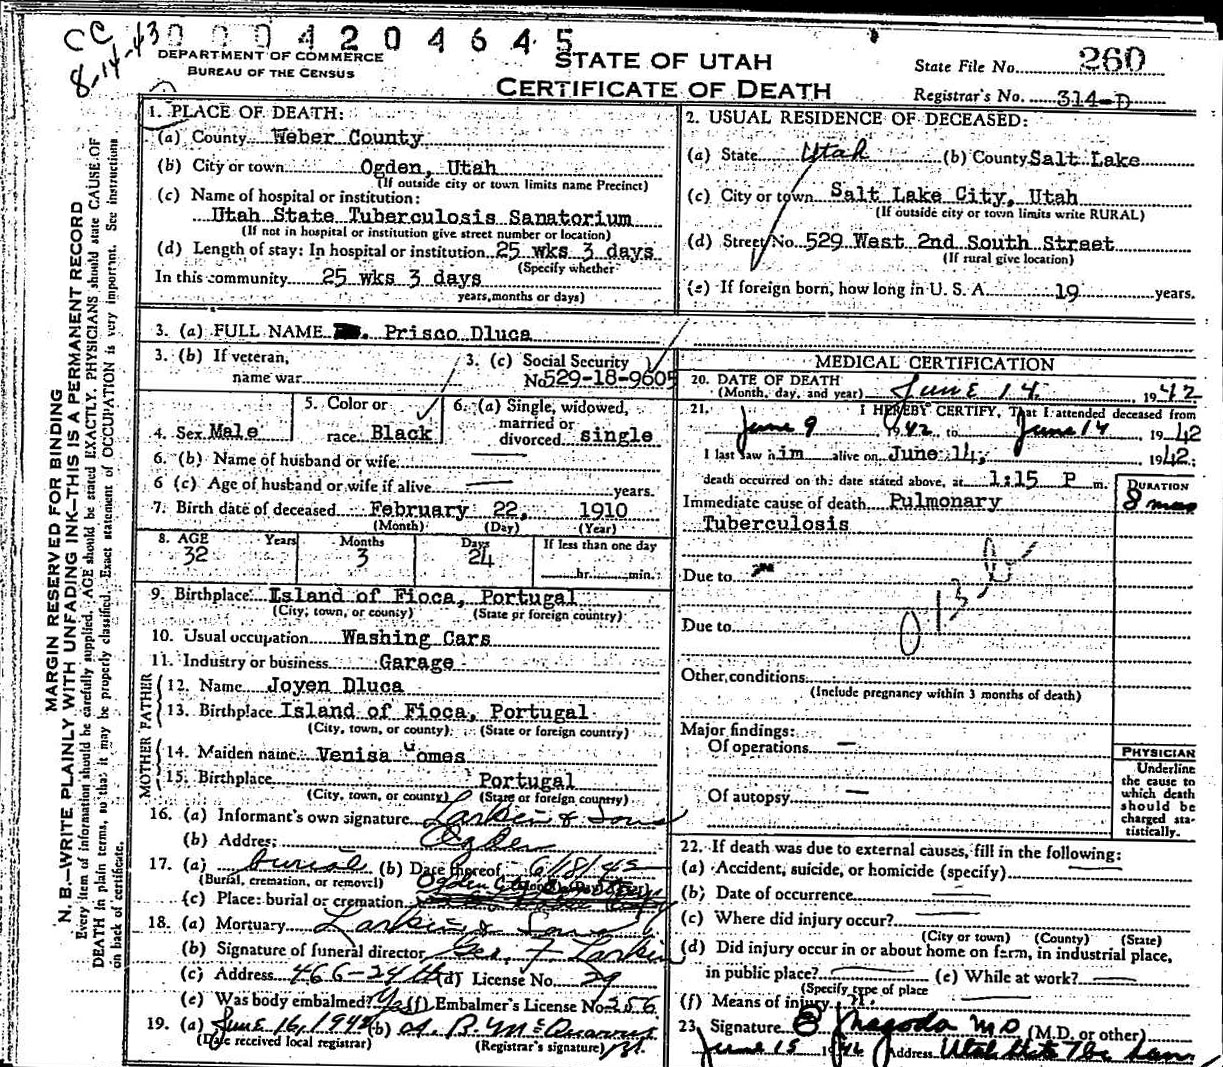 CC
8-14-43
0 0 0 4 2 0 4 6 4 5
DEPARTMENT OF COMMERCE
BUREAU OF THE CENSUS
STATE OF UTAH
CERTIFICATE OF DEATH
State File No. 260
Registrar's No. 314-D
MARGIN RESERVED FOR BINDING
N. B.—WRITE PLAINLY WITH UNFADING INK—THIS IS A PERMANENT RECORD
Every item of information should be carefully supplied. AGE should be stated EXACTLY. PHYSICIANS should state CAUSE OF
DEATH in plain terms, so that it may be properly classified. Exact statement of OCCUPATION is very important. See instructions
on back of certificate.
1. PLACE OF DEATH:
(a) County Weber County
(b) City or town Ogden, Utah
(If outside city or town limits name Precinct)
(c) Name of hospital or institution:
Utah State Tuberculosis Sanatorium
(If not in hospital or institution give street number or location)
(d) Length of stay: In hospital or institution 25 wks 3 days
(Specify whether
In this community 25 wks 3 days
years, months or days)
2. USUAL RESIDENCE OF DECEASED:
(a) State Utah (b) County Salt Lake
(c) City or town Salt Lake City, Utah
(If outside city or town limits write RURAL)
(d) Street No. 529 West 2nd South Street
(If rural give location)
(e) If foreign born, how long in U. S. A. 19 years.
3. (a) FULL NAME Prisco Dluca
3. (b) If veteran,
name war
3. (c) Social Security
No. 529-18-9605
4. Sex Male
5. Color or
race Black
6. (a) Single, widowed,
married or
divorced single
6. (b) Name of husband or wife
6 (c) Age of husband or wife if alive years.
7. Birth date of deceased February 22, 1910
(Month) (Day) (Year)
8. AGE Years Months Days If less than one day
32 3 24 hr. min.
9. Birthplace Island of Fioca, Portugal
(City, town, or county) (State or foreign country)
10. Usual occupation Washing Cars
11. Industry or business Garage
FATHER
12. Name Joyen Dluca
13. Birthplace Island of Fioca, Portugal
(City, town, or county) (State or foreign country)
MOTHER
14. Maiden name Venisa Gomes
15. Birthplace Portugal
(City, town, or county) (State or foreign country)
16. (a) Informant's own signature Larkin & Sons
(b) Address Ogden
17. (a) burial (b) Date thereof 6/18/42
(Burial, cremation, or removal)
(c) Place: burial or cremation Ogden City
18. (a) Mortuary Larkin & Sons
(b) Signature of funeral director Geo. F. Larkin
(c) Address 466-24th (d) License No. 29
(e) Was body embalmed? Yes (f) Embalmer's License No. 256
19. (a) June 16, 1942 (b)
(Date received local registrar) (Registrar's signature)
MEDICAL CERTIFICATION
20. DATE OF DEATH
(Month, day, and year) June 14, 1942
21. I HEREBY CERTIFY, That I attended deceased from
June 9 1942 to June 14, 1942
I last saw him alive on June 14, 1942;
death occurred on the date stated above, at 1:15 P m.
DURATION
Immediate cause of death Pulmonary 8 mos
Tuberculosis
Due to
Due to
013
Other conditions
(Include pregnancy within 3 months of death)
Major findings:
Of operations —
Of autopsy —
PHYSICIAN
Underline
the cause to
which death
should be
charged sta-
tistically.
22. If death was due to external causes, fill in the following:
(a) Accident, suicide, or homicide (specify)
(b) Date of occurrence
(c) Where did injury occur?
(City or town) (County) (State)
(d) Did injury occur in or about home on farm, in industrial place,
in public place? (e) While at work?
(Specify type of place
(f) Means of injury
23. Signature M D (M.D. or other)
June 15 1942 Address Utah State Tbc San